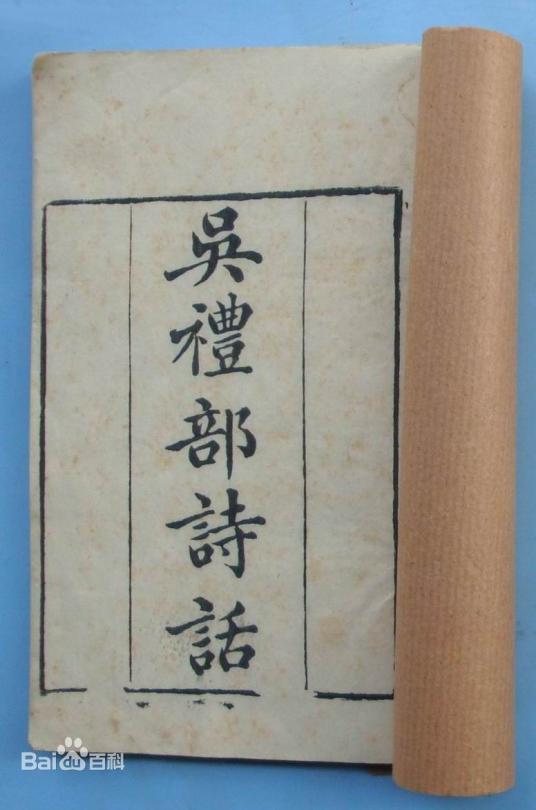 吳禮部詩話
Bai百科